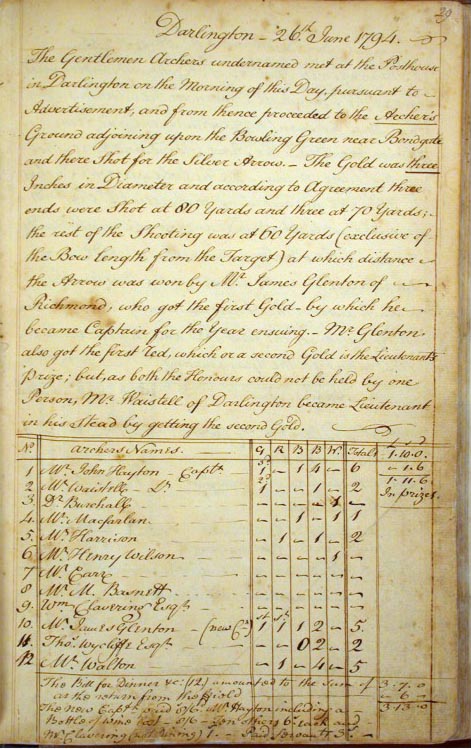 20
Darlington - 26th June 1794.
The Gentlemen Archers undernamed met at the Posthouse
in Darlington on the Morning of this Day, pursuant to
Advertisement, and from thence proceeded to the Archer's
Ground adjoining upon the Bowling Green near Bondgate
and there Shot for the Silver Arrow. - The Gold was three
Inches in Diameter and according to Agreement three
ends were Shot at 80 Yards and three at 70 Yards;
the rest of the Shooting was at 60 Yards (exclusive of
the Bow length from the Target) at which distance
the Arrow was won by Mr. James Glenton of
Richmond, who got the first Gold - by which he
became Captain for the Year ensuing. - Mr Glenton
also got the first Red, which or a second Gold is the Lieutenant's
Prize; but, as both the Honours could not be held by one
Person, Mr. Wristell of Darlington became Lieutenant
in his Stead by getting the second Gold.
No. Archers Names G R B B W. Total
1 Mr. John Hayton - Captn. 1 - 1 4 - 6 1.10.0
2 Mr. Waistell - Lt. 1 - - 1 - 2 - 1.6
3 Dr. Burchall - - - - 1 - 1.11.6
4 Mr. Macfarlan - - 1 - 1 1 In prizes
5 Mr. Harrison - 1 - 1 - 2
6 Mr. Henry Wilson - - - - 1 -
7 Mr. Carr - - - - - -
8 Mr. M. Barnett - - - - - -
9 Wm. Clavering Esqr. - - - - - -
10 Mr. James Glenton - (new Cn.) 1 1 1 2 - 5
11 Thos. Wycliffe Esqr. - - 0 2 - 2
12 Mr. Walton - 1 - 4 - 5
The Bill for Dinner &c. (12.) amounted to the Sum of 3.7.0
on the return from the Field - 6 -
The New Captn. paid Mr. Hayton including a 3.13.0
Bottle of Wine
Mr. Clavering 1. - Paid